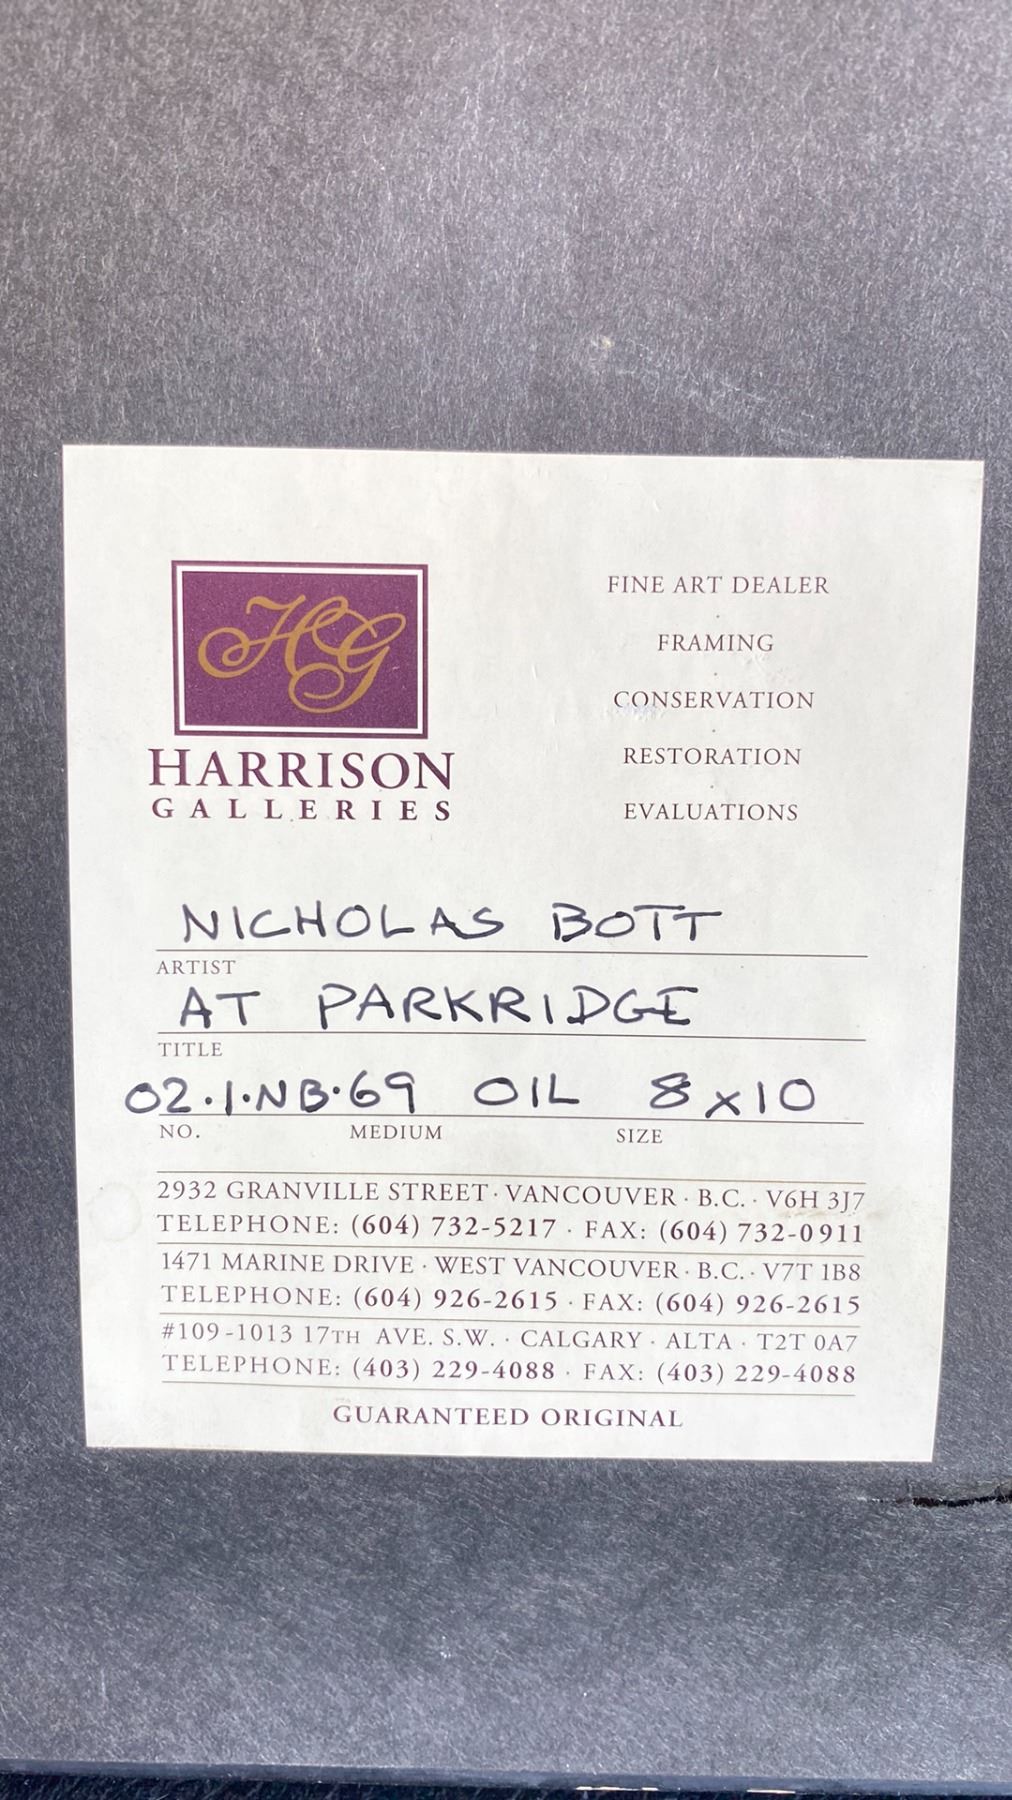 HG
HARRISON
GALLERIES
FINE ART DEALER
·
FRAMING
·
CONSERVATION
·
RESTORATION
·
EVALUATIONS
NICHOLAS BOTT
ARTIST
AT PARKRIDGE
TITLE
02.1.NB.69 OIL 8x10
NO. MEDIUM SIZE
2932 GRANVILLE STREET · VANCOUVER · B.C. · V6H 3J7
TELEPHONE: (604) 732-5217 · FAX: (604) 732-0911
1471 MARINE DRIVE · WEST VANCOUVER · B.C. · V7T 1B8
TELEPHONE: (604) 926-2615 · FAX: (604) 926-2615
#109-1013 17TH AVE. S.W. · CALGARY · ALTA · T2T 0A7
TELEPHONE: (403) 229-4088 · FAX: (403) 229-4088
GUARANTEED ORIGINAL